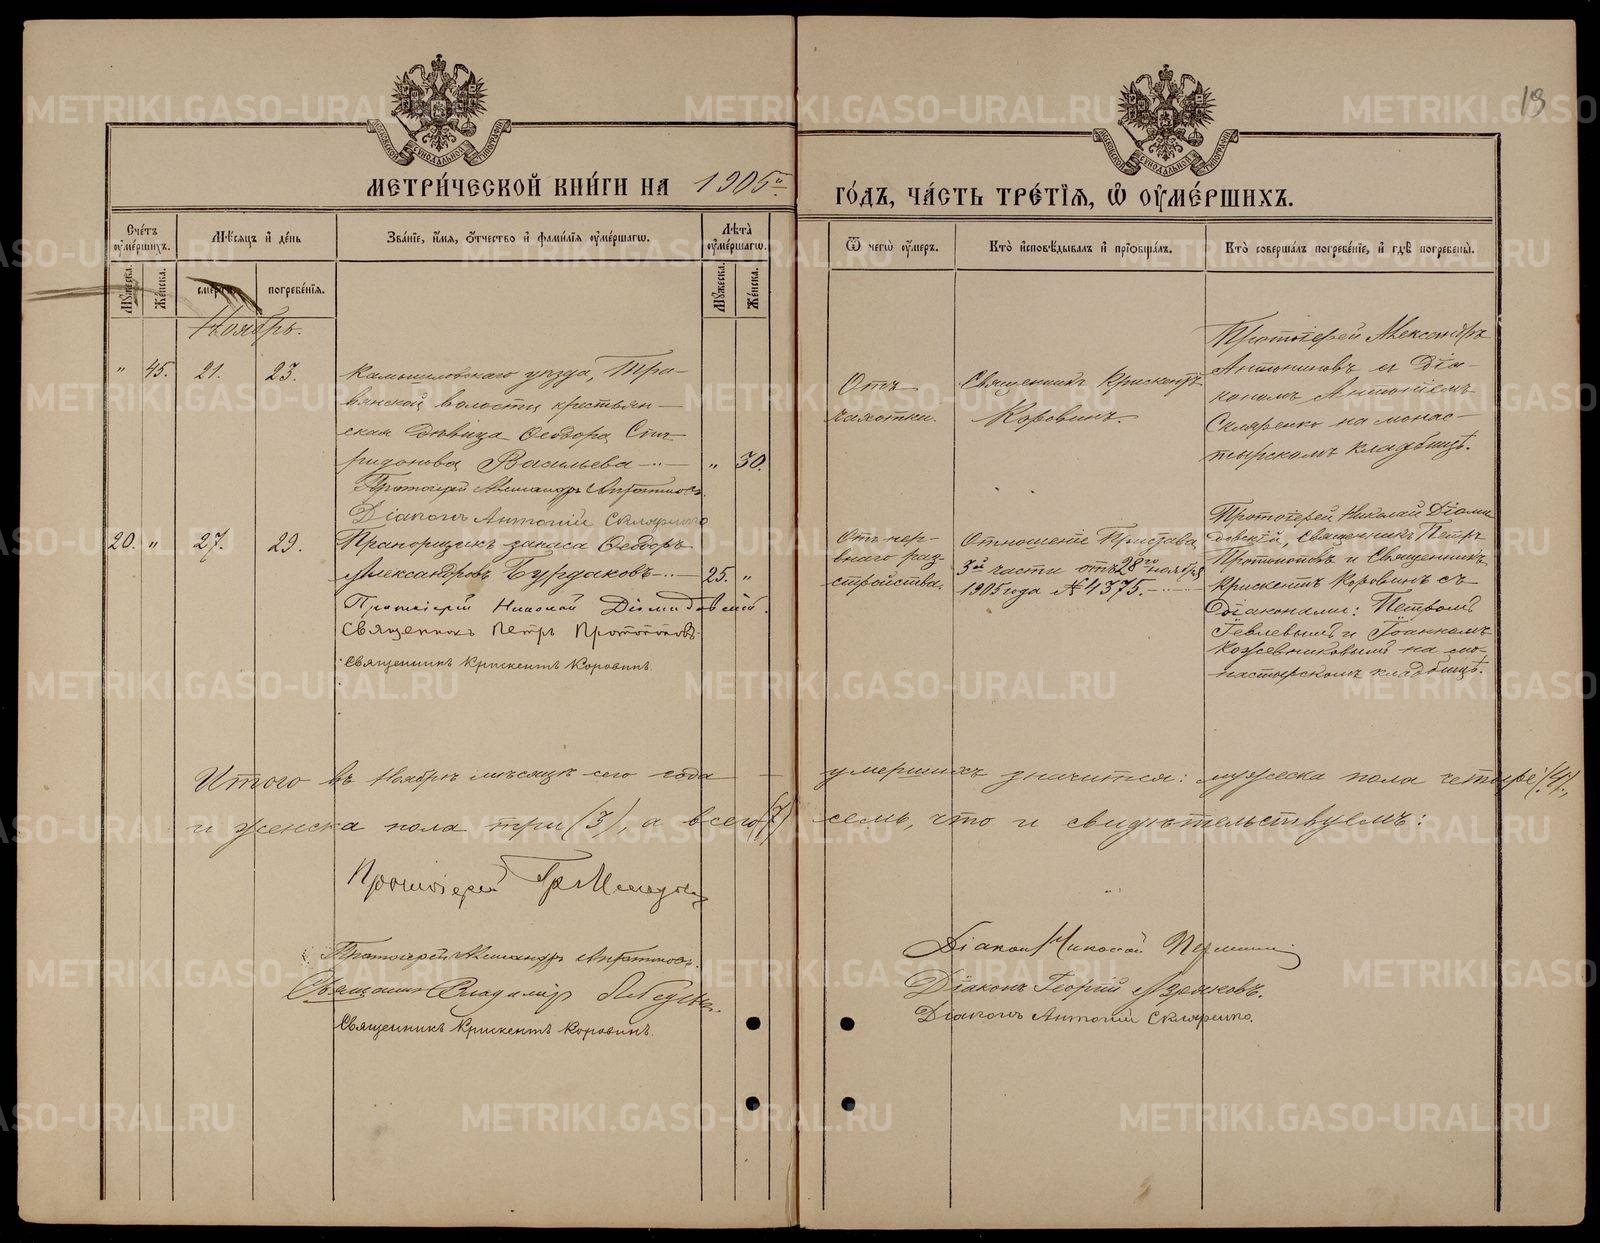 19
МЕТРИ́ЧЕСКОЙ КНИ́ГИ НА 1905й
ГО́ДЪ, ЧА́СТЬ ТРЕ́ТІѦ, Ѡ҆ ОУ҆МЕ́РШИХЪ.
Сче́тъ оу҆ме́ршихъ.
Мѣ́сяцъ и҆ де́нь
Зва́нїе, и҆́мѧ, о҆́тчество и҆ фами́лїѧ оу҆ме́ршагѡ.
Лѣ́та оу҆ме́ршагѡ.
Ѿ чегѡ̀ оу҆́меръ.
Кто̀ и҆сповѣ́дывалъ и҆ прїѡбща́лъ.
Кто̀ соверша́лъ погребе́нїе, и҆ гдѣ̀ погребены̀.
Мꙋ́жеска.
Же́нска.
сме́рти.
погребе́нїѧ.
Мꙋ́жеска.
Же́нска.
Ноябрь.
" 45. 21. 23.
Камышловскаго уѣзда, Тра-
вянской волости, крестьян-
ская дѣвица Ѳеодора Спи-
ридонова Васильева " 30.
Протоіерей Александръ Антониновъ.
Діаконъ Антоній Скляренко
Отъ
чахотки.
Священникъ Крискентъ
Коровинъ.
Протоіерей Александръ
Антониновъ и Діа-
кономъ Антоніемъ
Скляренко на монас-
тырскомъ кладбищѣ.
20. " 27. 29.
Прапорщикъ запаса Ѳеодоръ
Александровъ Бурдаковъ 25. "
Протоіерей Николай Діомидовскій.
Священникъ Петръ Протопоповъ
Священникъ Крискентъ Коровинъ.
Отъ нер-
внаго раз-
стройства.
Отношеніе Пристава
3й части отъ 28го ноября
1905 года № 4375.
Протоіерей Николай Діоми
довскій, Священникъ Петръ
Протопоповъ и Священникъ
Крискентъ Коровинъ съ
діаконами: Петромъ
и Іоанномъ
Кожевниковымъ на мо-
настырскомъ кладбищѣ.
Итого въ Ноябрѣ мѣсяцѣ сего года умершихъ значится: мужеска пола четыре (4),
и женска пола три (3), а всего (7) семь, что и свидѣтельствуемъ:
Протоіерей
Протоіерей Александръ Антониновъ.
Священникъ Владиміръ
Священникъ Крискентъ Коровинъ.
Діаконъ Николай
Діаконъ Георгій
Діаконъ Антоній Скляренко.
METRIKI.GASO-URAL.RU